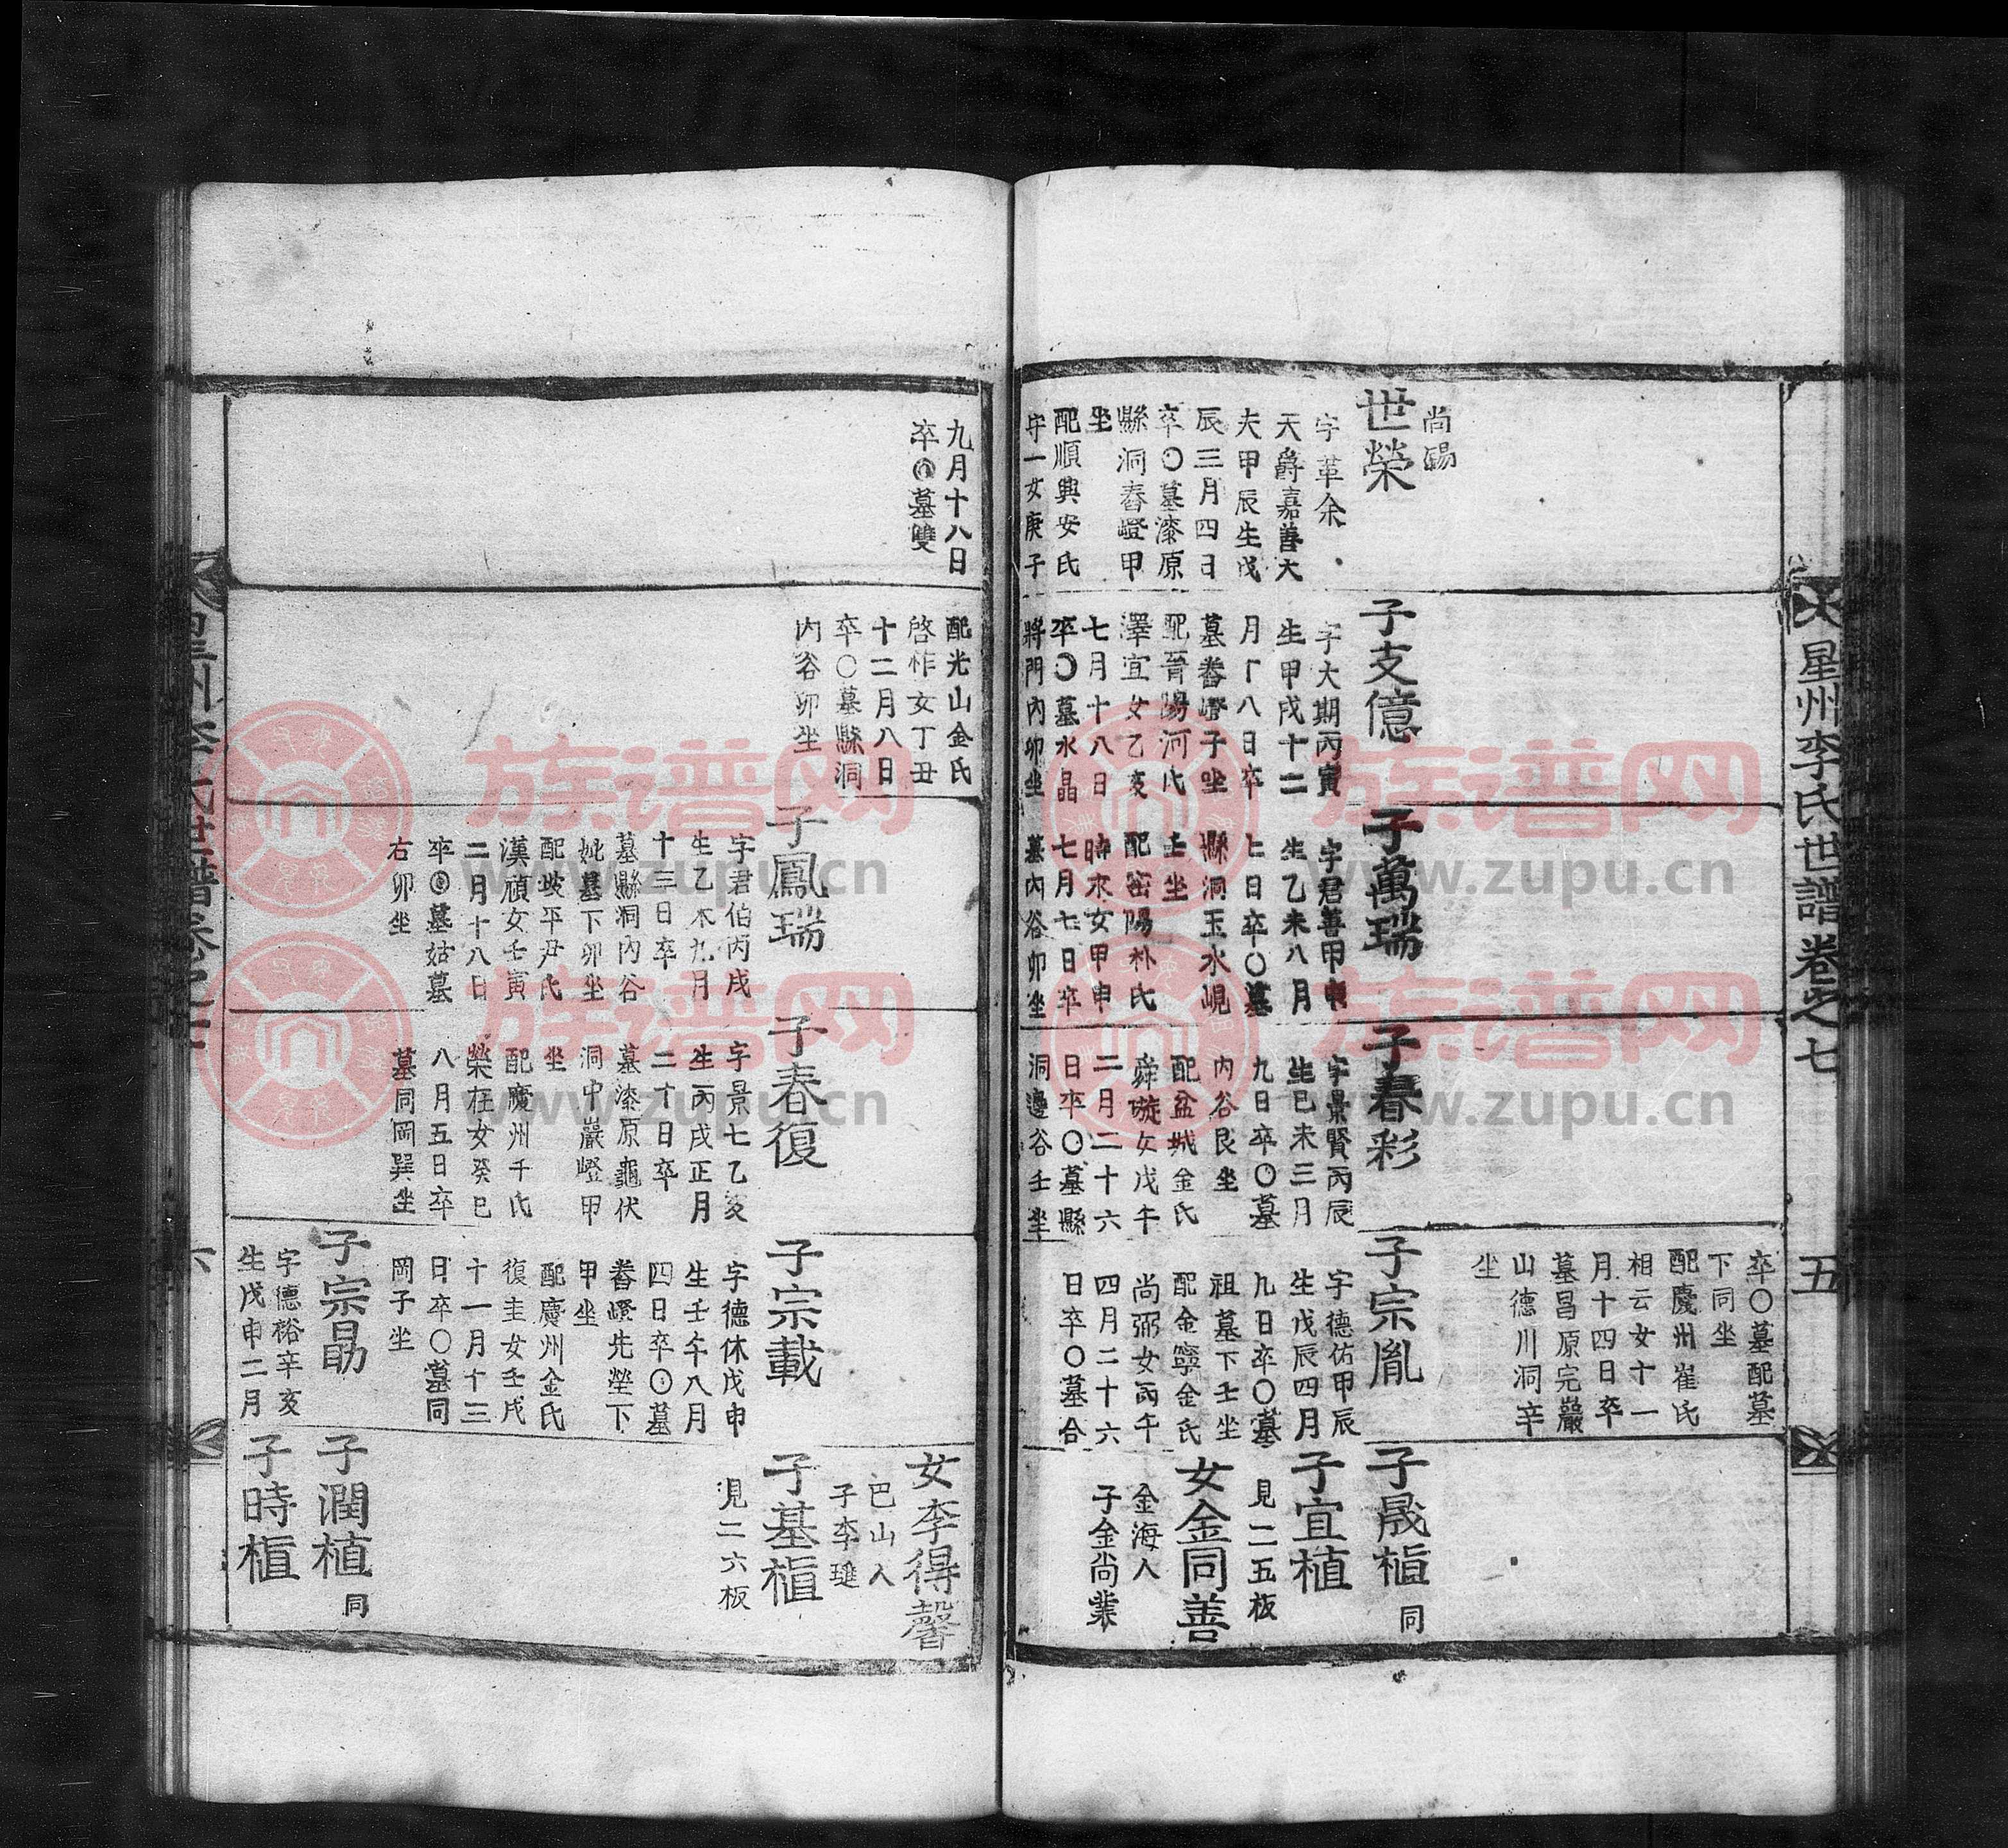 星州李氏世譜卷之七
五
尚賜
世榮
字革余
天爵嘉善大
夫甲辰生戊
辰三月四日
卒〇墓漆原
縣洞舂嶝甲
坐
配順興安氏
守一女庚子
子支億
字大期丙寅
生甲戌十二
月丁八日卒
墓舂嶝子坐
配晉陽河氏
澤宜女乙亥
七月十八日
卒〇墓水晶
將門內卯坐
子萬瑞
字君善甲申
生乙未八月
七日卒〇墓
縣洞玉水峴
壬坐
配密陽朴氏
時永女甲申
七月七日卒
墓內谷卯坐
子春彩
字景賢丙辰
生巳未三月
九日卒〇墓
內谷艮坐
配盆城金氏
舜璇女戊午
二月二十六
日卒〇墓縣
洞邊谷壬坐
卒〇墓配墓
下同坐
配慶州崔氏
相云女十一
月十四日卒
墓昌原完巖
山德川洞辛
坐
子宗胤
字德佑甲辰
生戊辰四月
九日卒〇墓
祖墓下壬坐
配金寧金氏
尚弼女丙午
四月二十六
日卒〇墓合
子晟楦 同
子宜植
見二五板
女金同善
金海人
子金尚業
九月十八日
卒〇墓雙
配光山金氏
啓祚女丁丑
十二月八日
卒〇墓縣洞
內谷卯坐
子鳳瑞
字君伯丙戌
生乙木九月
十三日卒
墓縣洞內谷
妣墓下卯坐
配坡平尹氏
漢頑女壬寅
二月十八日
卒〇墓姑墓
右卯坐
子春復
字景七乙亥
生丙戌正月
二十日卒
墓漆原龜伏
洞中巖嶝甲
坐
配慶州千氏
榮在女癸巳
八月五日卒
墓同岡巽坐
子宗載
字德休戊申
生壬午八月
四日卒〇墓
舂嶝先塋下
甲坐
配慶州金氏
復圭女壬戌
十一月十三
日卒〇墓同
岡子坐
子宗勗
字德裕辛亥
生戊申二月
女李得馨
巴山人
子李璡
子基楦
見二六板
子潤植 同
子時楦
星州李氏世譜卷之七
六
族谱网
www.zupu.cn
族谱网
www.zupu.cn
族谱网
www.zupu.cn
族谱网
www.zupu.cn